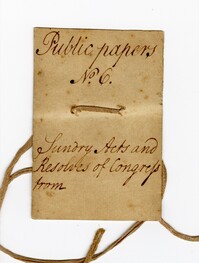 Public papers
No. 6.
Sundry Acts and
Resolves of Congress
from